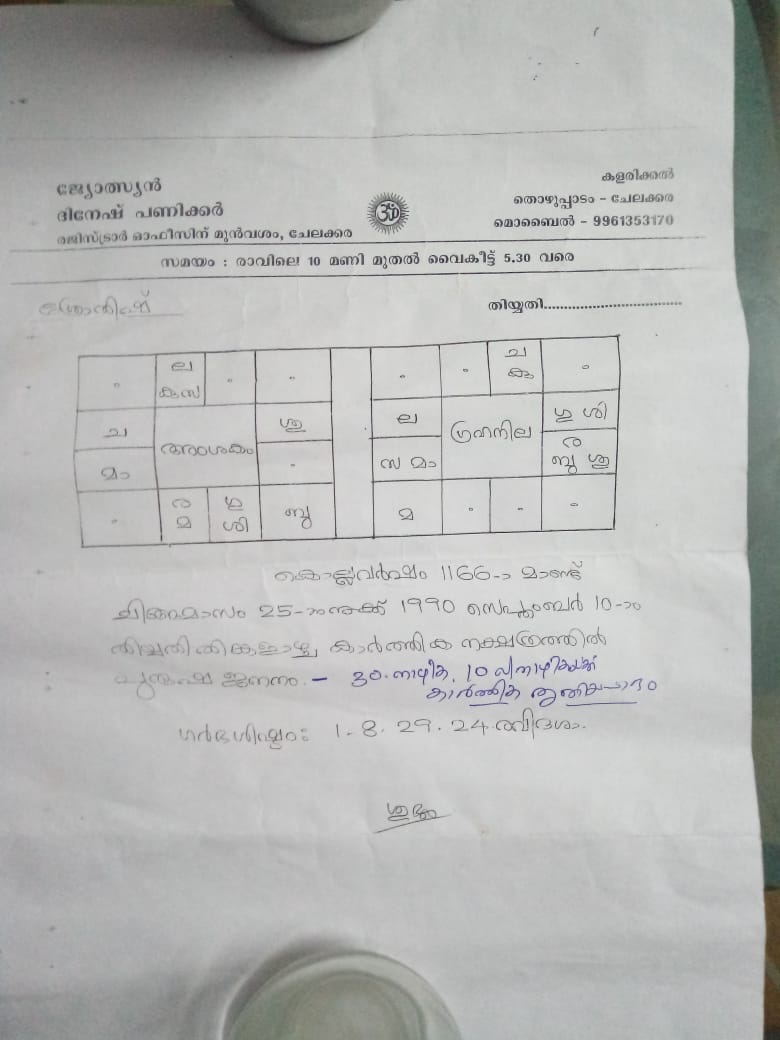 ജ്യോത്സ്യൻ
ദിനേഷ് പണിക്കർ
രജിസ്ട്രാർ ഓഫീസിന് മുൻവശം, ചേലക്കര
കളരിക്കൽ
തൊഴുപ്പാടം – ചേലക്കര
മൊബൈൽ – 9961353170
സമയം : രാവിലെ 10 മണി മുതൽ വൈകീട്ട് 5.30 വരെ
തിയ്യതി................................
ല
കു സ
ച
അംശകം
ശു
മാ
ര
മ
ഗു
ശി
ബു
ച
കു
ല
ഗ്രഹനില
ഗു ശി
സ മാ
ര
ബു ശു
മ
കൊല്ലവർഷം 1166-ാ മാണ്ട്
ചിങ്ങമാസം 25-ാംനക്ക് 1990 സെപ്റ്റംബർ 10-ാം
തിയ്യതി തിങ്കളാഴ്ച കാർത്തിക നക്ഷത്രത്തിൽ
ജനനം – 30 നാഴിക, 10 വിനാഴികക്ക്
കാർത്തിക തൃതീയപാദം
ഗർഭശിഷ്ടം: 1. 8. 29. 24 രവിദശാ.
ശുഭം